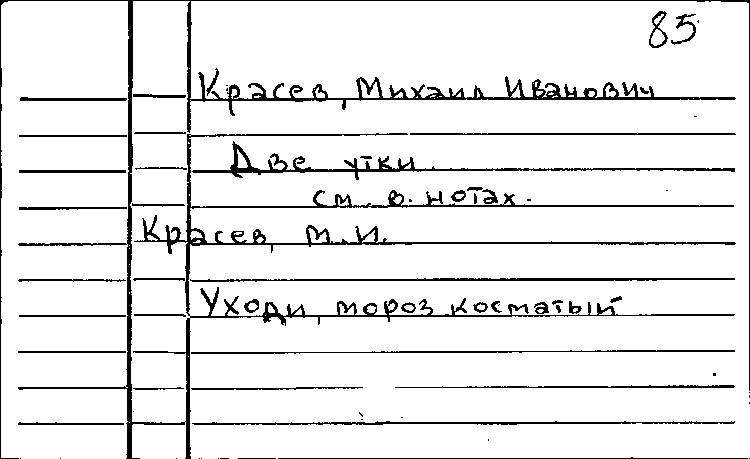 85
Красев, Михаил Иванович
Две утки.
см. в. нотах.
Красев, М.И.
Уходи, мороз косматый